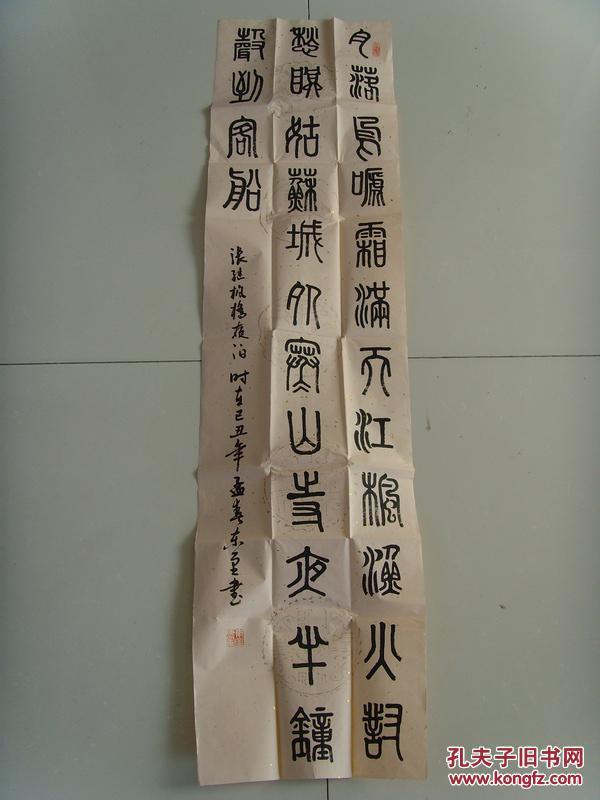 月落烏嗁霜滿天江楓漁火對
愁眠姑蘇城外寒山寺夜半鐘
聲到客船
張継楓橋夜泊 时在己丑年孟春东書
孔夫子旧书网
www.kongfz.com